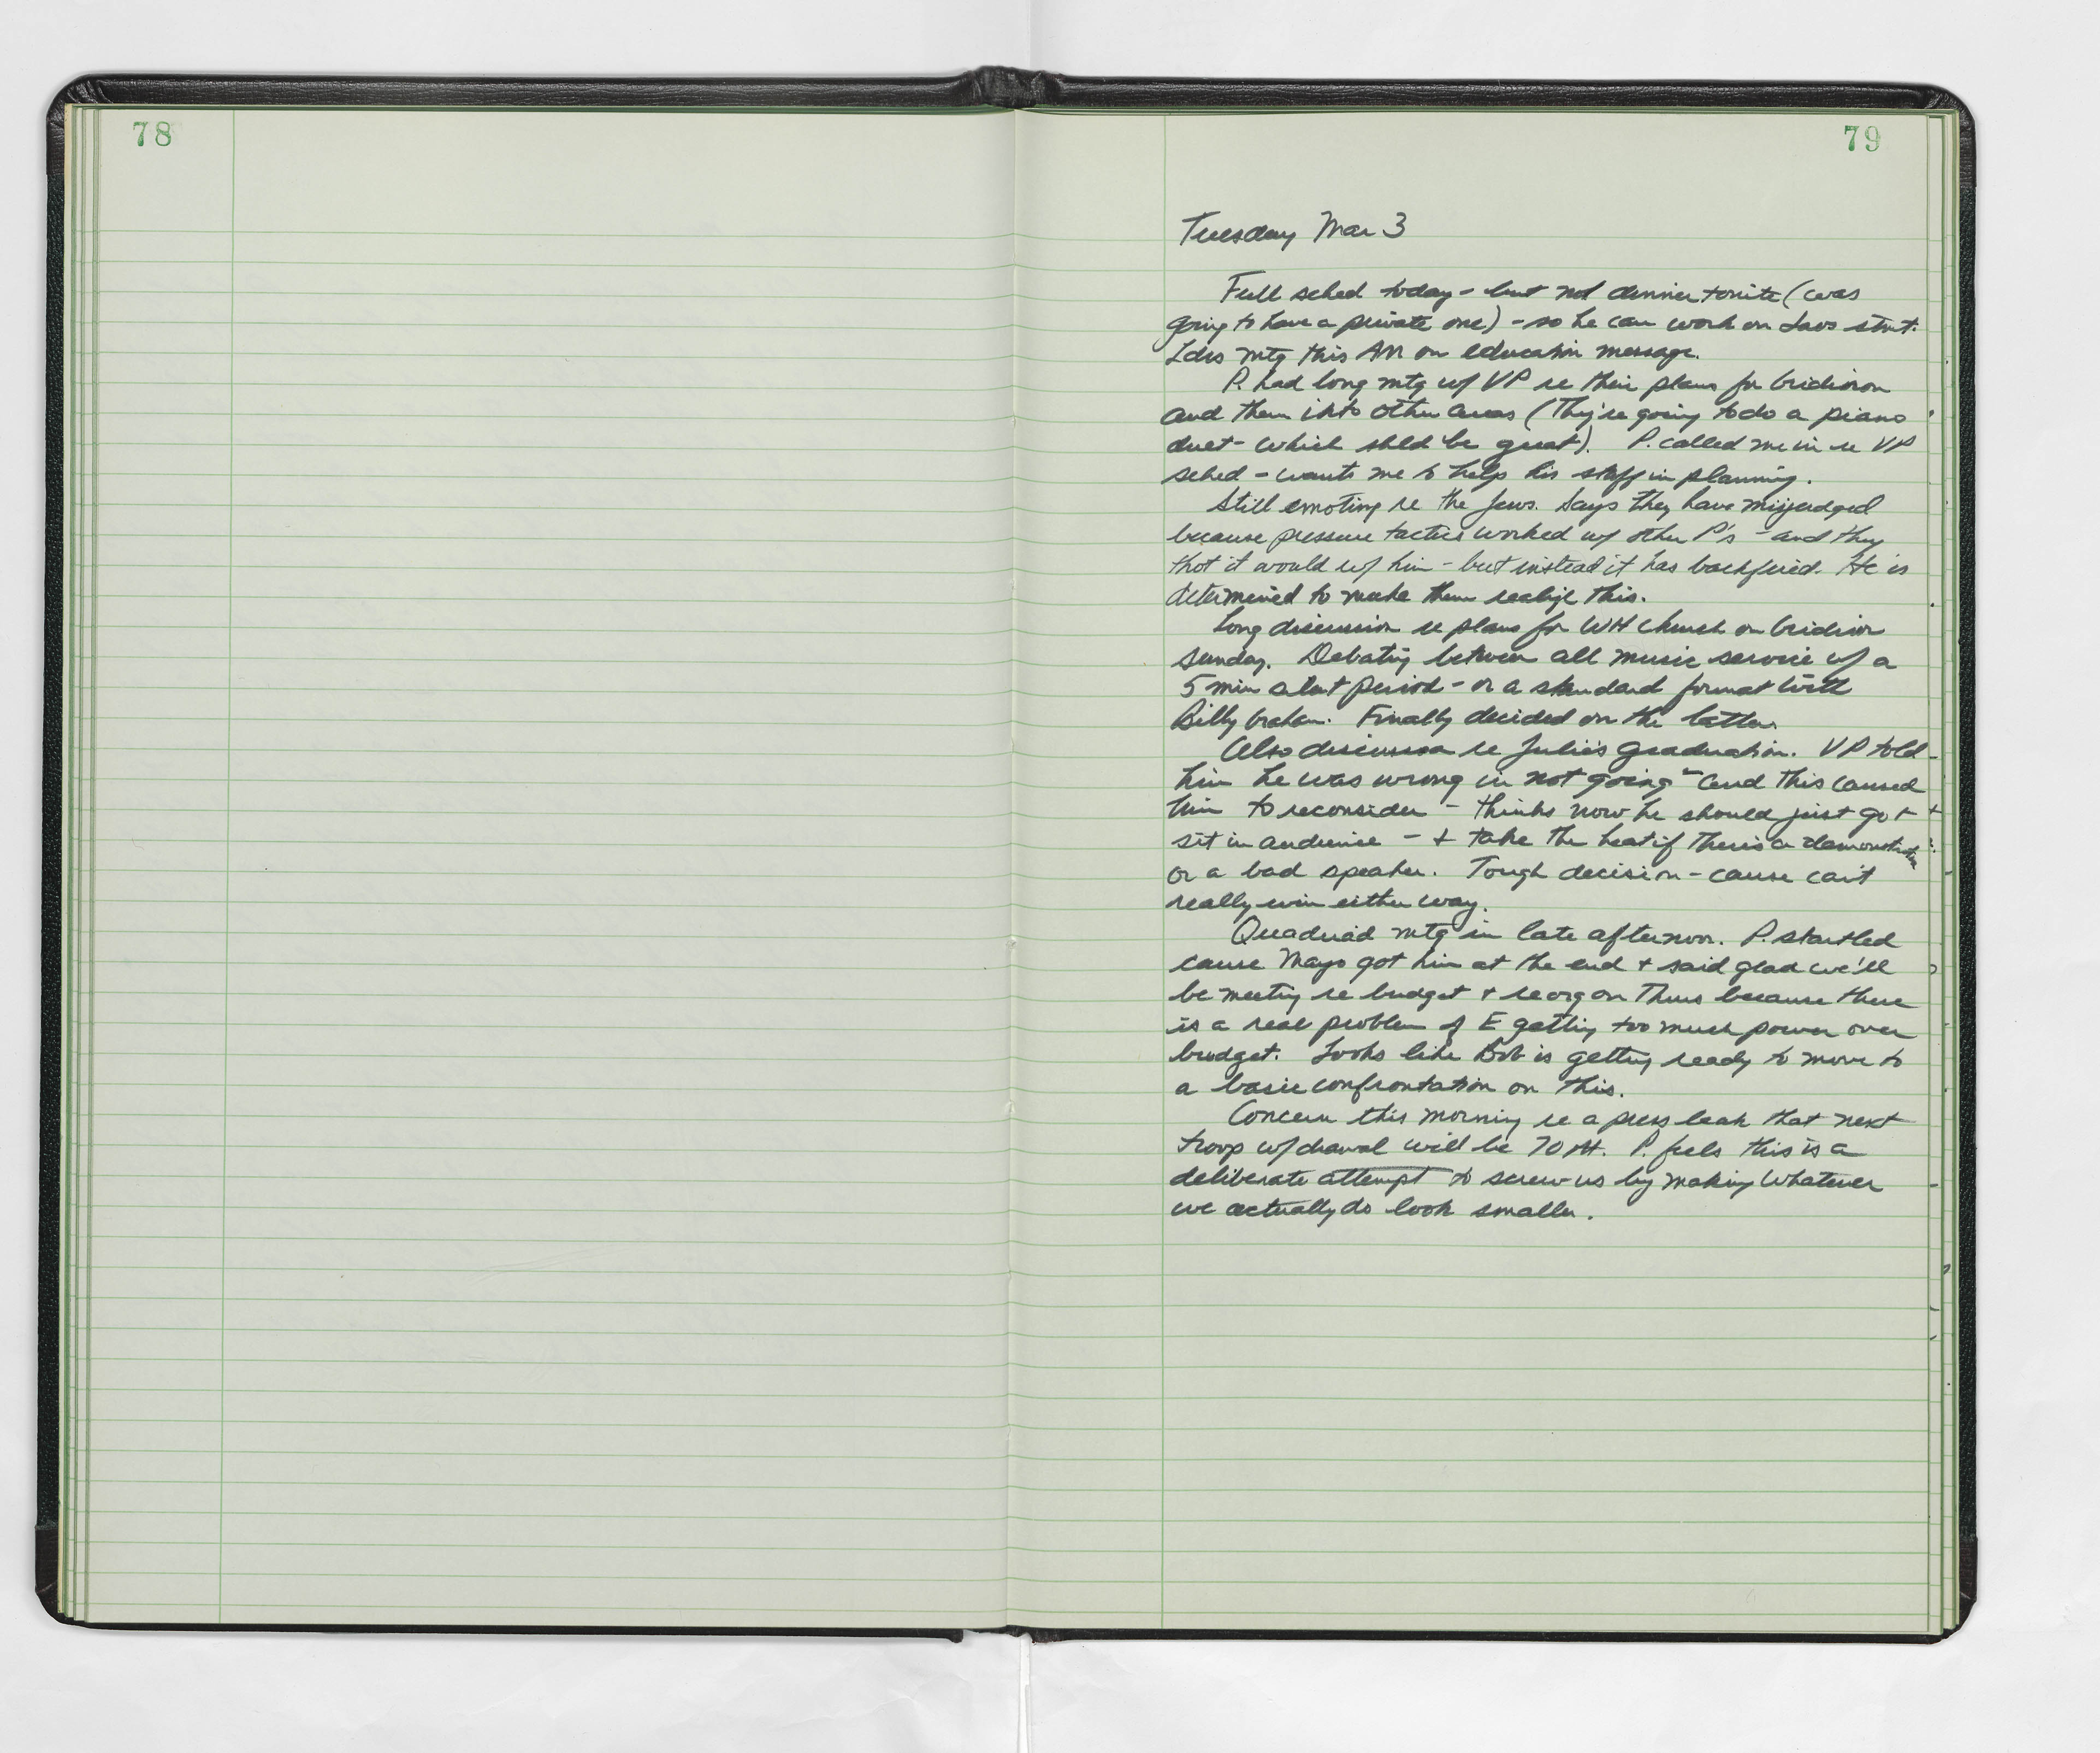 78
79
Tuesday Mar 3
Full sched today - but not dinner tonite (was
going to have a private one) - so he can work on Laos stmt.
Ldrs mtg this AM on education message.
P. had long mtg w/ VP re their plans for Gridiron
and then into other areas (They're going to do a piano
duet - which shld be great). P. called me in re VP
sched - wants me to help his staff in planning.
Still emoting re the Jews. Says they have misjudged
because pressure tactics worked w/ other P's - and they
thot it would w/ him - but instead it has backfired. He is
determined to make them realize this.
Long discussion re plans for WH Church on Gridiron
Sunday. Debating between all music service w/ a
5 min silent period - or a standard format with
Billy Graham. Finally decided on the latter.
Also discussion re Julie's graduation. VP told
him he was wrong in not going - and this caused
him to reconsider - thinks now he should just go +
sit in audience - + take the heat if there's a demonstration
or a bad speaker. Tough decision - cause can't
really win either way.
Quadriad mtg in late afternoon. P. startled
cause Mayo got him at the end + said glad we'll
be meeting re budget + reorg on Thurs because there
is a real problem of E getting too much power over
budget. Looks like Bob is getting ready to move to
a basic confrontation on this.
Concern this morning re a press leak that next
troop w/drawal will be 70 M. P. feels this is a
deliberate attempt to screw us by making whatever
we actually do look smaller.